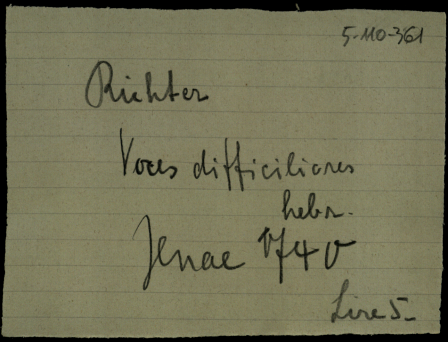 5-110-361
Richter
Voces difficiliores
hebr.
Jenae 1740
Lire 5-